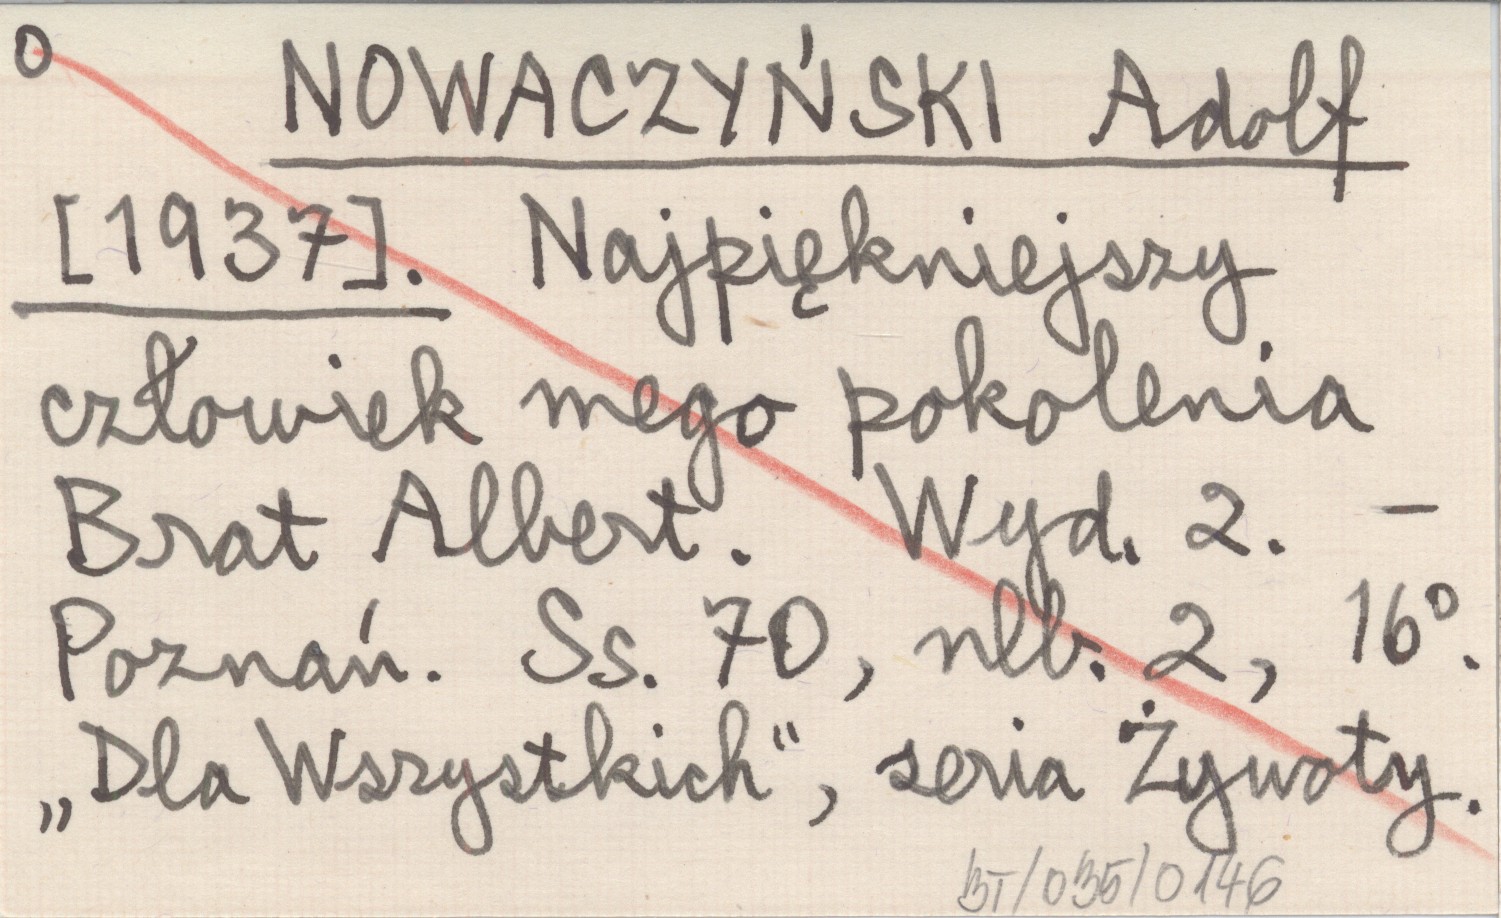 0 NOWACZYŃSKI Adolf
[1937]. Najpiękniejszy
człowiek mego pokolenia
Brat Albert. Wyd. 2. –
Poznań. Ss. 70, nlb. 2, 16º.
„Dla Wszystkich“, seria Żywoty.
BT/035/0146